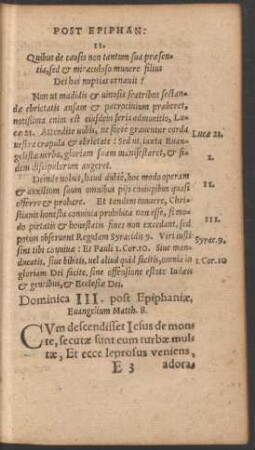 POST EPIPHAN:
II.
Quibus de causis non tantum sua præsen-
tia, sed & miraculoso munere filius
Dei has nuptias ornauit?
Non ut madidis & uinosis fratribus sectan-
dæ ebrietatis ansam & patrocinium præberet,
notissima enim est eiusdem seria admonitio, Lu-
cæ 21. Attendite uobis, ne forte grauentur corda
uestra crapula & ebrietate: Sed ut, iuxta Euan-
gelistæ uerba, gloriam suam manifestaret, & fi-
dem discipulorum augeret.
Deinde uoluit, haud dubiè, hoc modo operam
& auxilium suum omnibus pijs coniugibus quasi
offerre & probare. Et tandem innuere, Chri-
stianis honesta conuiuia prohibita non esse, si mo-
do pietatis & honestatis fines non excedant, sed
potius obseruent Regulam Syracidis 9. Viri iusti
sint tibi conuiuæ: Et Pauli 1. Cor. 10. Siue man-
ducatis, siue bibitis, uel aliud quid facitis, omnia in
gloriam Dei facite, sine offensione estote Iudæis
& gentibus, & Ecclesiæ Dei.
Lucæ 21.
I.
II.
III.
Syrac. 9.
1. Cor. 10
Dominica III. post Epiphaniæ,
Euangelium Matth. 8.
CVm descendisset Iesus de mon-
te, secutæ sunt eum turbæ mul-
tæ, Et ecce leprosus veniens,
E 3 adora-